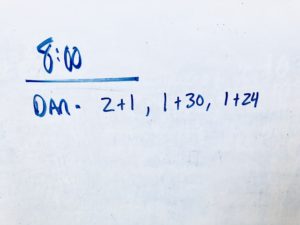 8:00
DAN. 2+1, 1+30, 1+24